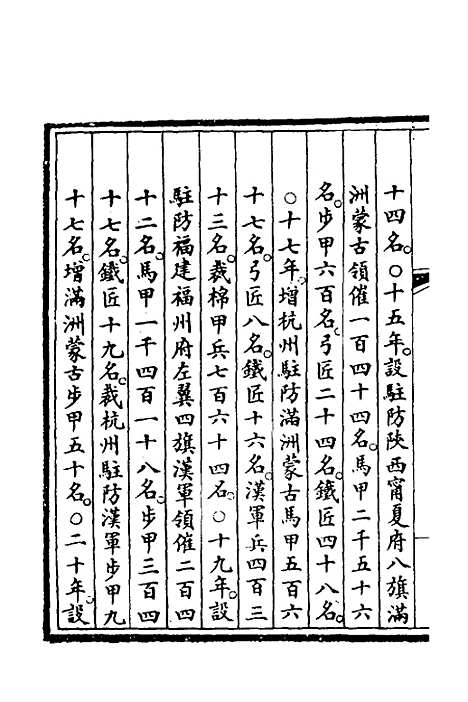 十四名。○十五年。設駐防陝西甯夏府八旗滿
洲蒙古領催一百四十四名。馬甲二千五十六
名。步甲六百名。弓匠二十四名。鐵匠四十八名。
○十七年。增杭州駐防滿洲蒙古馬甲五百六
十七名。弓匠八名。鐵匠十六名。漢軍兵四百三
十三名。裁棉甲兵七百六十四名。○十九年。設
駐防福建福州府左翼四旗漢軍領催二百四
十二名。馬甲一千四百一十八名。步甲三百四
十七名。鐵匠十九名。裁杭州駐防漢軍步甲九
十七名。增滿洲蒙古步甲五十名。○二十年。設